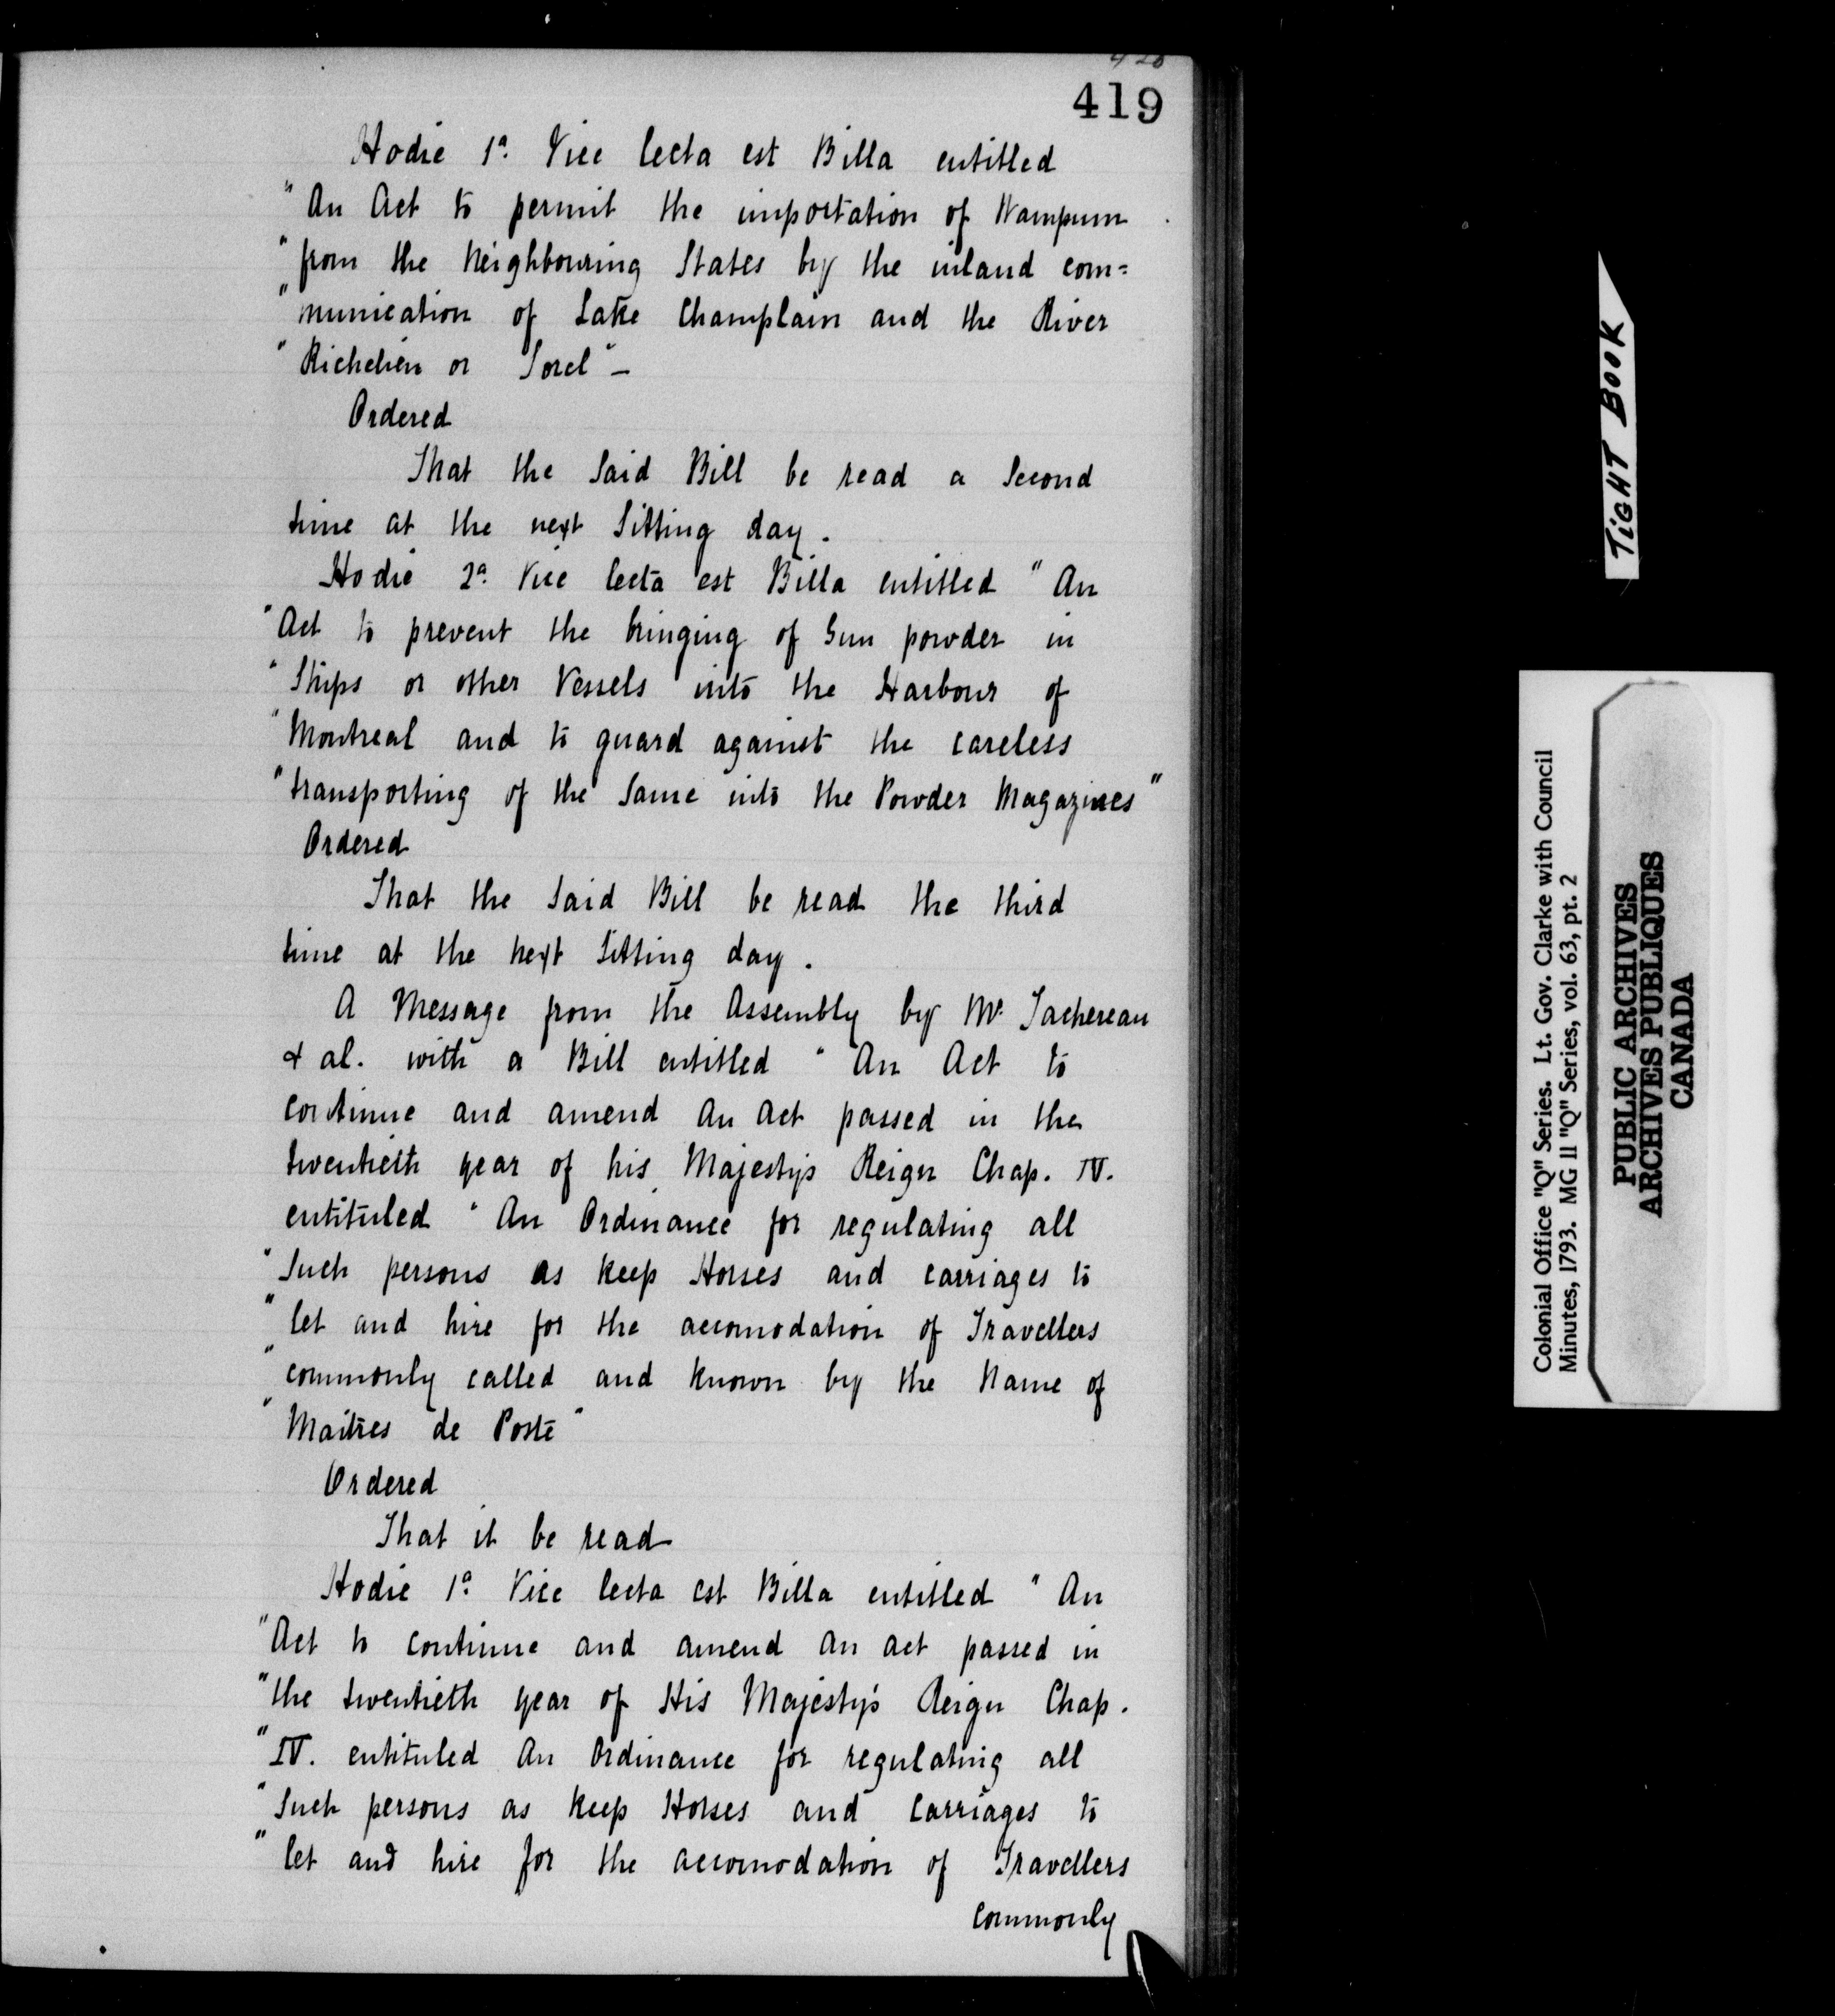 419
Hodie 1a. Vice lecta est Billa entitled
"An Act to permit the importation of Wampum
"from the Neighbouring States by the inland com=
"munication of Lake Champlain and the River
"Richelieu or Sorel" —
Ordered
That the Said Bill be read a Second
time at the next Sitting day.
Hodie 2a. Vice lecta est Billa entitled "An
"Act to prevent the bringing of Gun powder in
"Ships or other Vessels into the Harbour of
"Montreal and to guard against the careless
"transporting of the Same into the Powder Magazines"
Ordered
That the Said Bill be read the third
time at the next Sitting day.
A Message from the Assembly by Mr. Tachereau
& al. with a Bill entitled "An Act to
continue and amend An Act passed in the
twentieth year of his Majesty's Reign Chap. IV.
entituled "An Ordinance for regulating all
"Such persons as keep Horses and carriages to
"let and hire for the accomodation of Travellers
"commonly called and known by the Name of
"Maitres de Poste"
Ordered
That it be read
Hodie 1a. Vice lecta est Billa entitled "An
"Act to continue and amend An Act passed in
"the twentieth year of His Majesty's Reign Chap.
"IV. entituled An Ordinance for regulating all
"Such persons as keep Horses and Carriages to
"let and hire for the accomodation of Travellers
commonly
TIGHT BOOK
Colonial Office "Q" Series. Lt. Gov. Clarke with Council
Minutes, 1793. MG 11 "Q" Series, vol. 63, pt. 2
PUBLIC ARCHIVES
ARCHIVES PUBLIQUES
CANADA